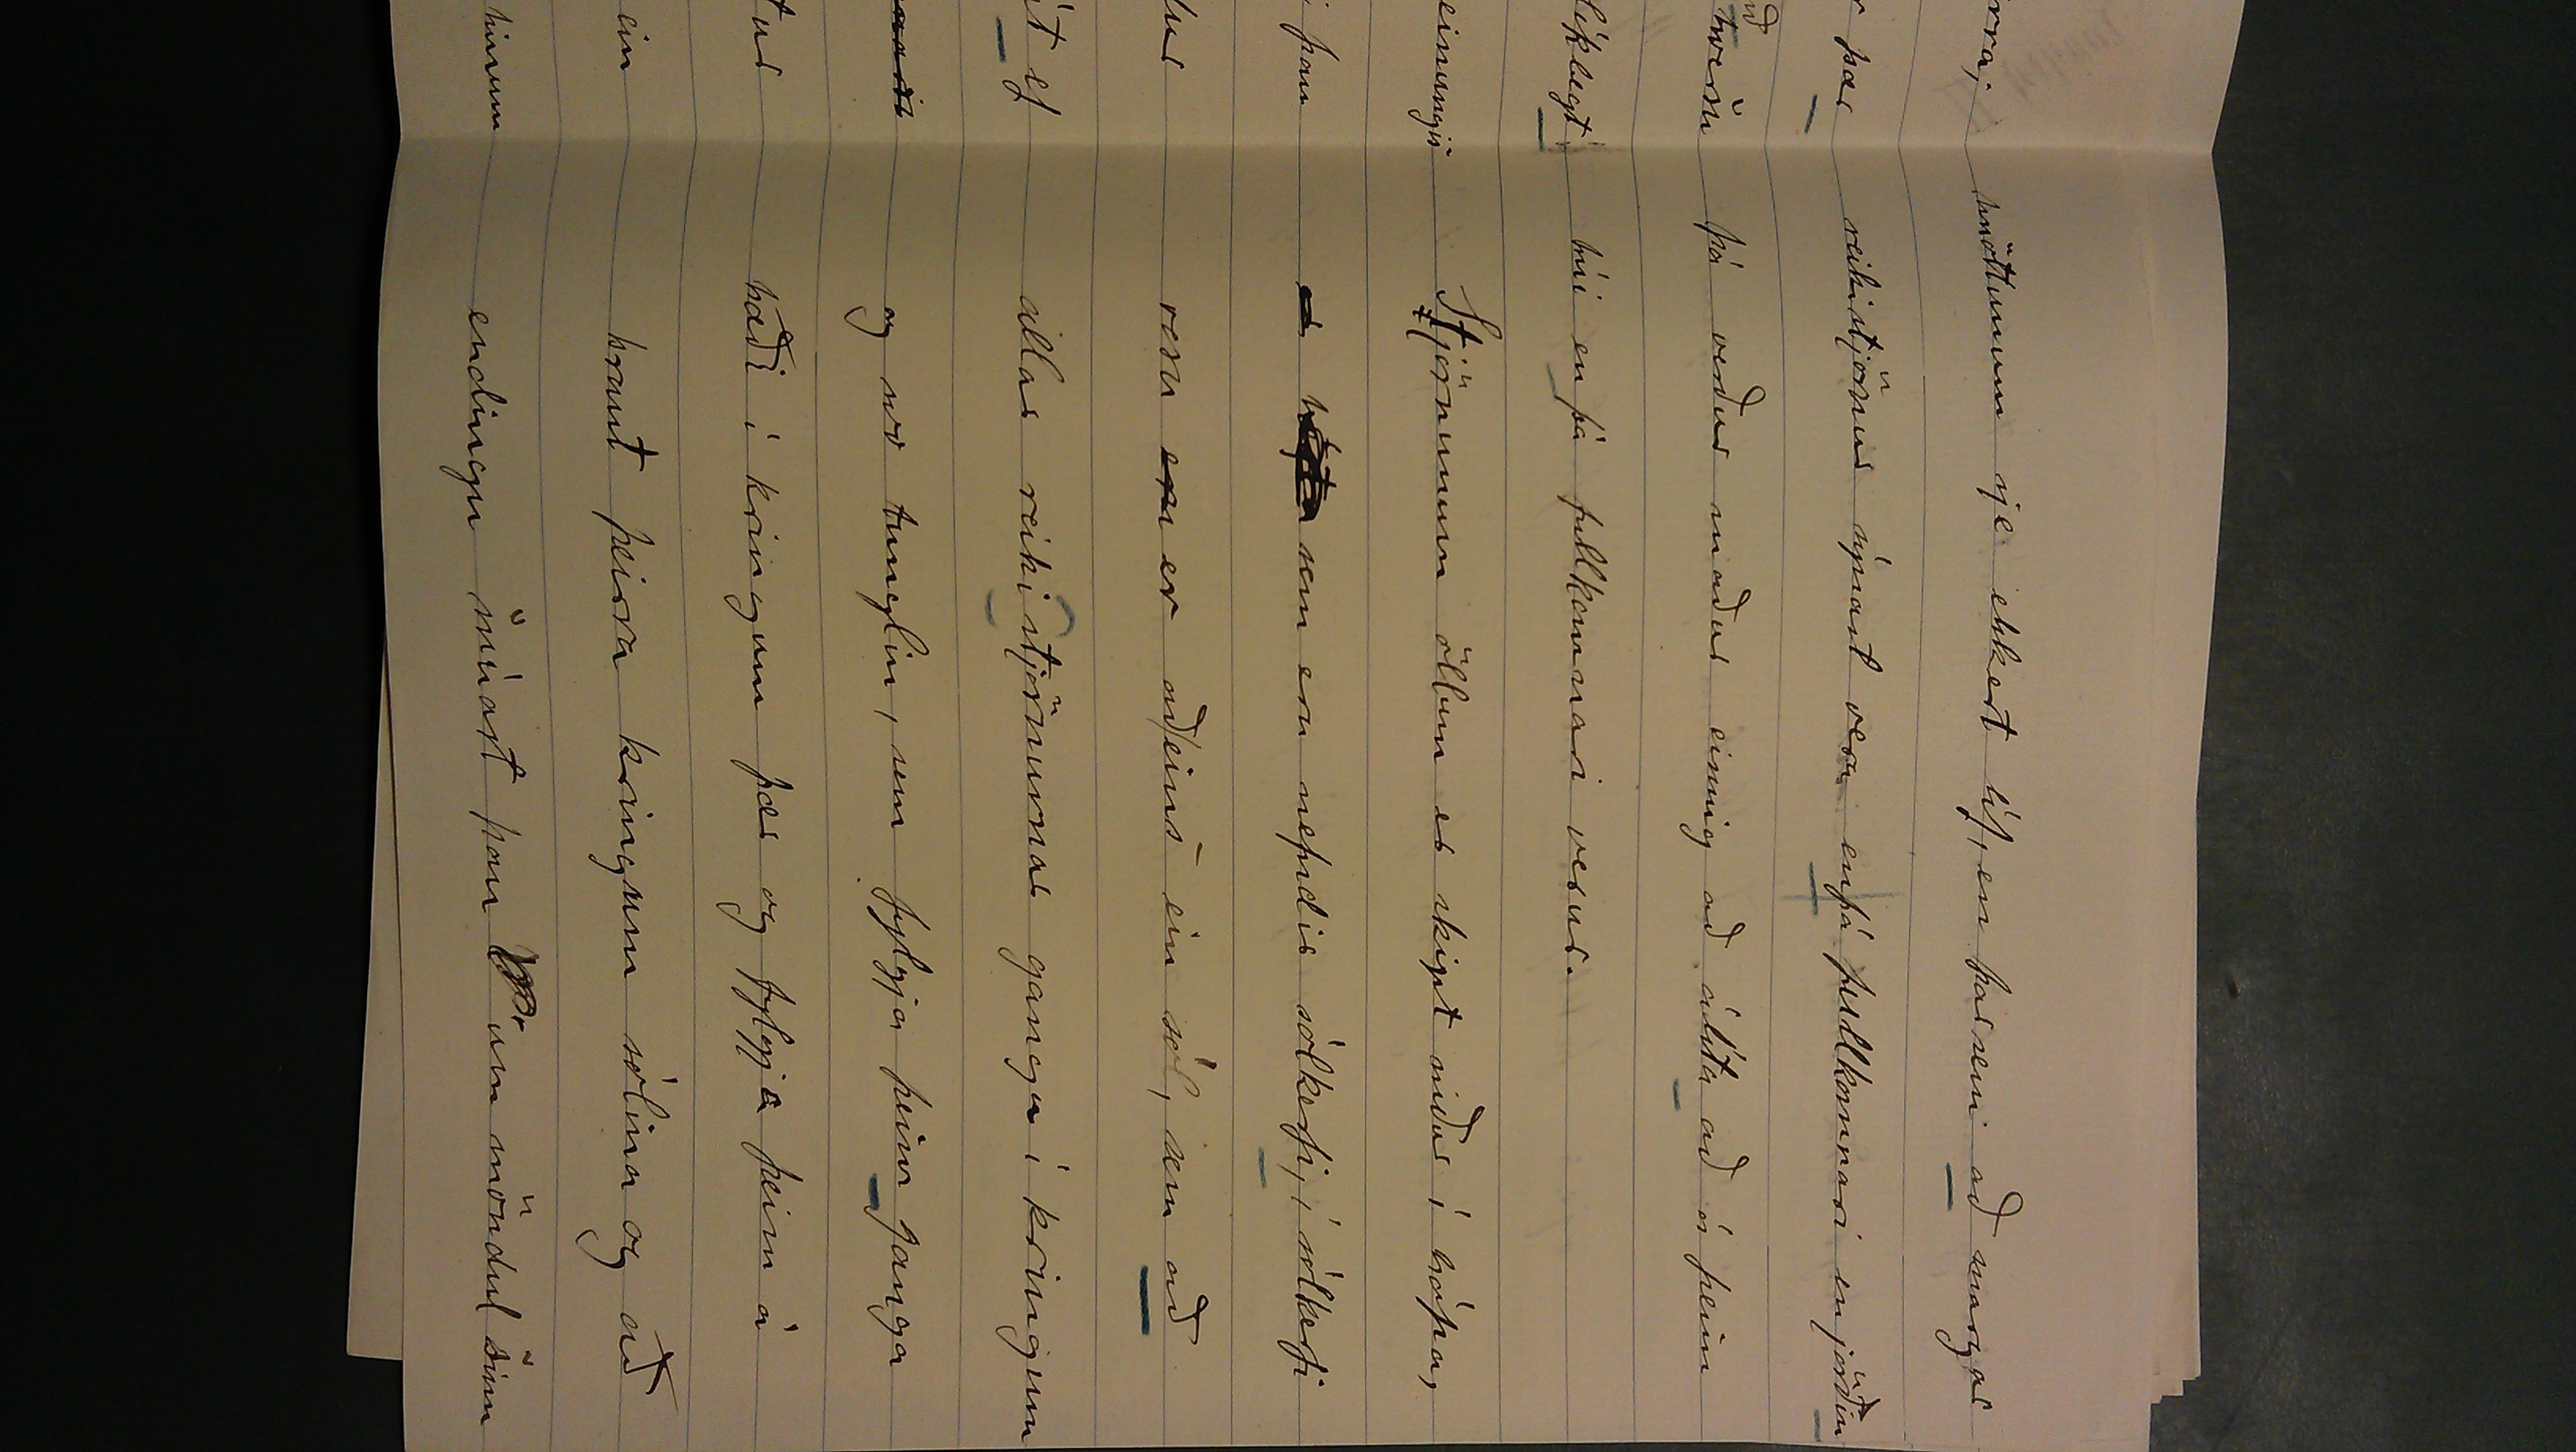 hnöttunum sje ekkert líf, en þarsem að margar
þær reikistjörnur sýnast vera enþá fullkomnari en jörðin
þá verður maður einnig að álíta að á þeim
líklegt búi en þá fullkomnari verur.
Stjörnunum öllum er skipt niður í hópa,
þau sem eru nefndir sólkerfi, í sólkerfi
voru er aðeins ein sól, sem að
allar reikistjörnurnar ganga í kringum
og svo tunglin, sem fylgja þeim ganga
bæði í kringum þær og fylgja þeim á
ein braut þeirra kringum sólina og að
hinum endingu snúast þau um möndul sinn